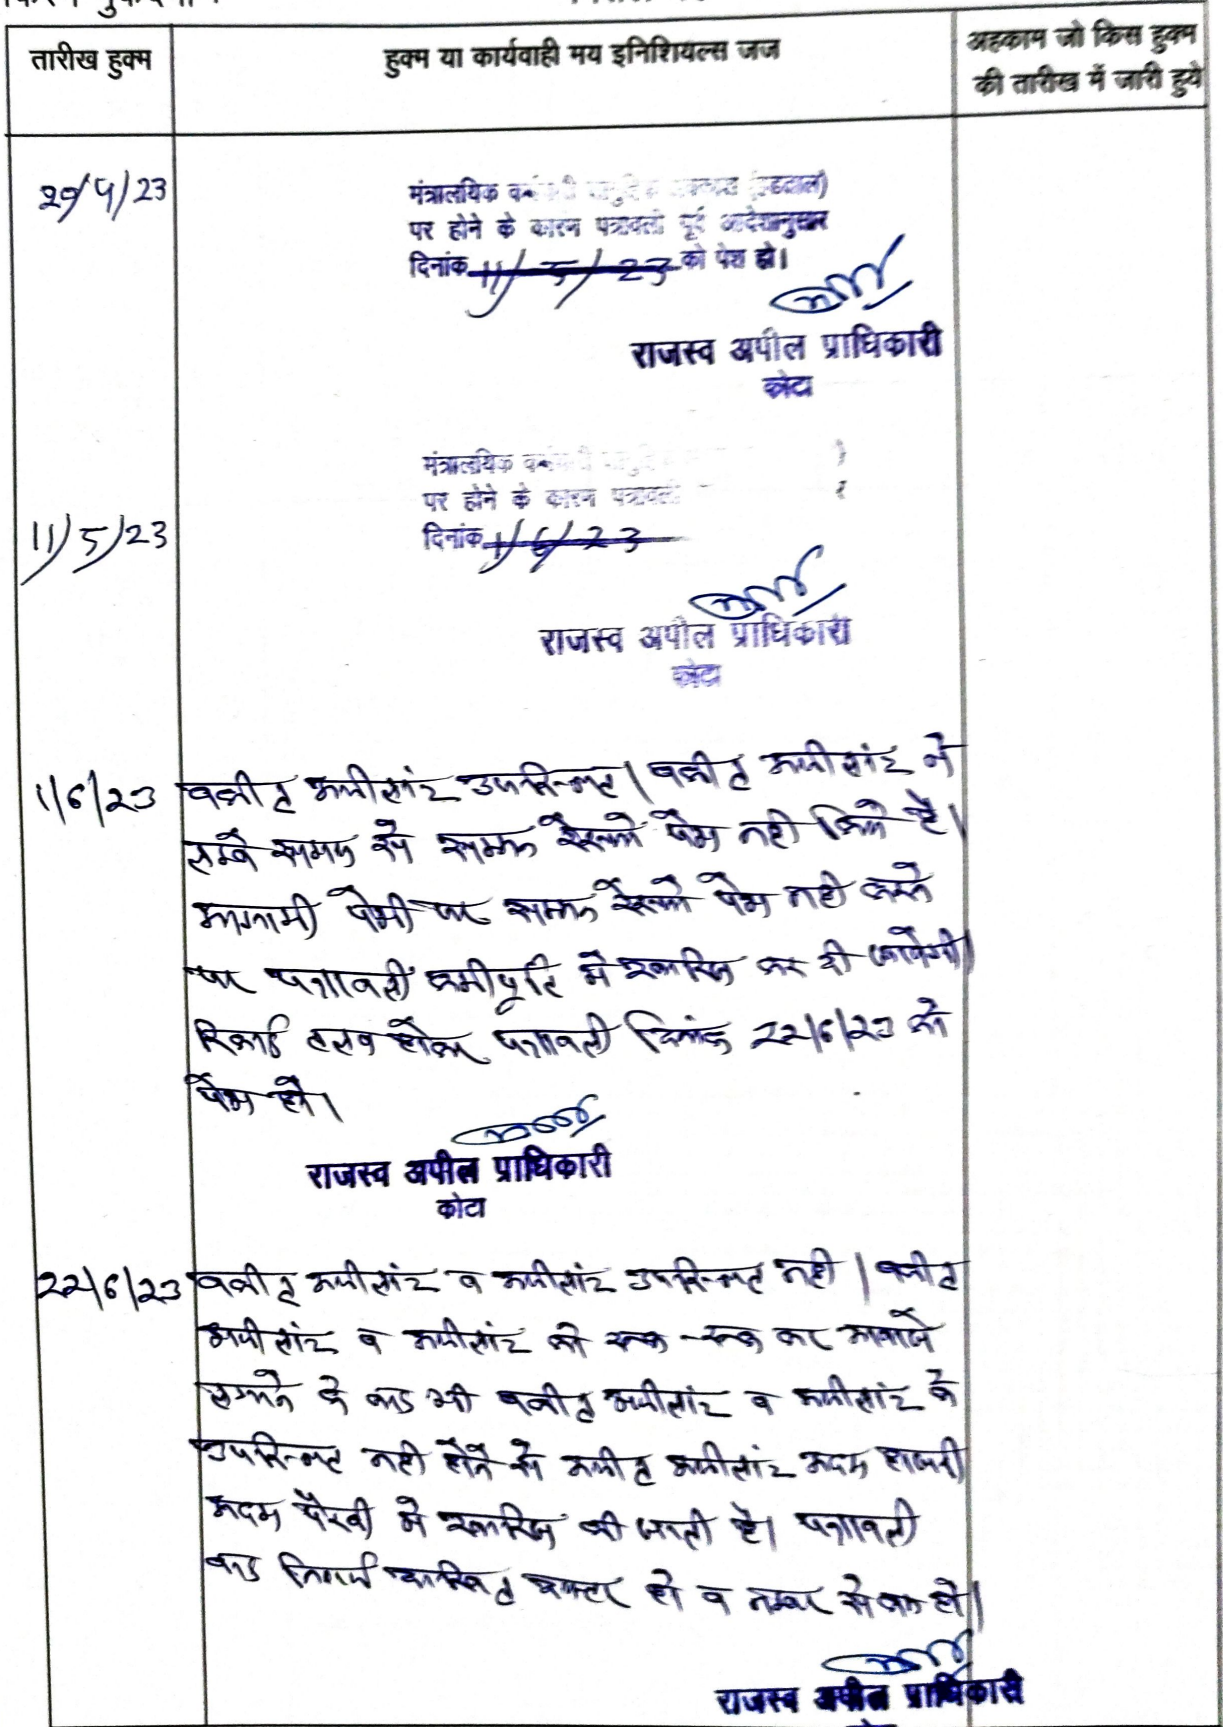 तारीख हुक्म
हुक्म या कार्यवाही मय इनिशियल्स जज
अहकाम जो किस हुक्म
की तारीख में जारी हुये
मंत्रालयिक (हडताल)
पर होने के कारण पत्रावली पूर्व आदेशानुसार
दिनांक 11/5/23 को पेश हो।
राजस्व अपील प्राधिकारी
कोटा
मंत्रालयिक
पर होने के कारण पत्रावली
11/5/23
दिनांक 1/6/23
राजस्व अपील प्राधिकारी
कोटा
1/6/23 वकील अपीलांट उपस्थित। वकील अपीलांट ने
लम्बे समय से सम्मन रेस्पो पेश नही किये है।
आगामी पेशी पर सम्मन रेस्पो पेश नही करने
पर पत्रावली कमीपूर्ति मे खारिज कर दी जावेगी।
रिकार्ड तलब होकर पत्रावली दिनांक 22/6/23 को
पेश हो।
राजस्व अपील प्राधिकारी
कोटा
22/6/23 वकील अपीलांट व अपीलांट उपस्थित नही। वकील
अपीलांट व अपीलांट को रूक-रूक कर आवाजे
लगाने के बाद भी वकील अपीलांट व अपीलांट के
उपस्थित नही होने से अपील अपीलांट अदम हाजरी
अदम पैरवी मे खारिज की जाती है। पत्रावली
बाद दाखिल दफ्तर हो व नम्बर से कम हो।
राजस्व अपील प्राधिकारी